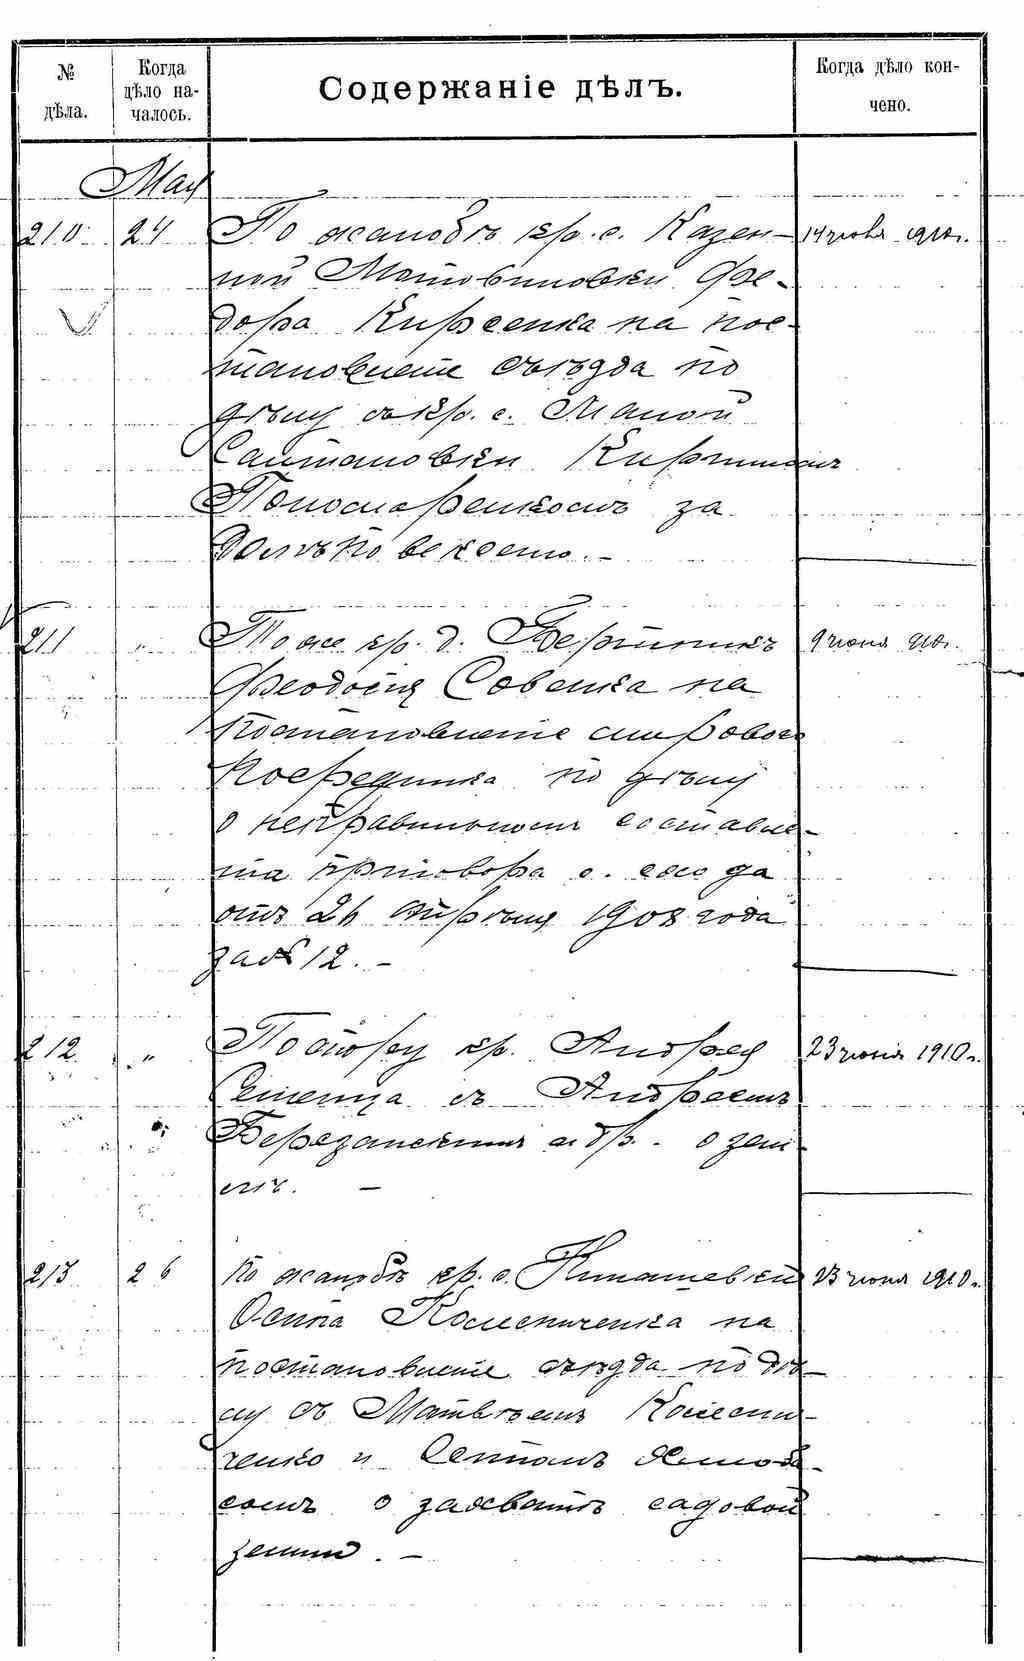 № дѣла.
Когда дѣло началось.
Содержаніе дѣлъ.
Когда дѣло кончено.
Мая
210 24 По жалобѣ кр. с. Казен-
ной Мотовиловки Фе-
дора Кирсенка на пос-
тановленіе съѣзда по
дѣлу съ кр. с. Малой
Салтановки Кирилломъ
Пономаренкомъ за
долгъ по векселю. -
14 іюня 1910 г.
211 " Тоже кр. д.
Феодосія Совенка на
постановленіе мирового
посредника по дѣлу
о неправильномъ составле-
ніи приговора с. схода
отъ 26 апрѣля 1908 года
за № 12. -
9 іюня 910 г.
212 " По спору кр. Андрея
Семенца съ Андреемъ
Березанскимъ и др. о зем-
лѣ. -
23 іюня 1910 г.
213 26 По жалобѣ кр. с.
Осипа Колесниченка на
постановленіе съѣзда по дѣ-
лу съ Матвѣемъ Колесни-
ченко и
о захватѣ садовой
земли. -
23 іюня 1910 г.